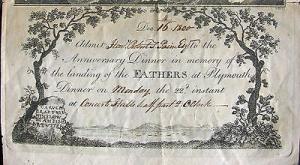 Dec. 16 1800
Admit Hon. Robert T. Paine Esq. to the
Anniversary Dinner in memory of
the landing of the FATHERS at Plymouth
Dinner on Monday the 22d. instant
at Concert Hall half past 2 OClock